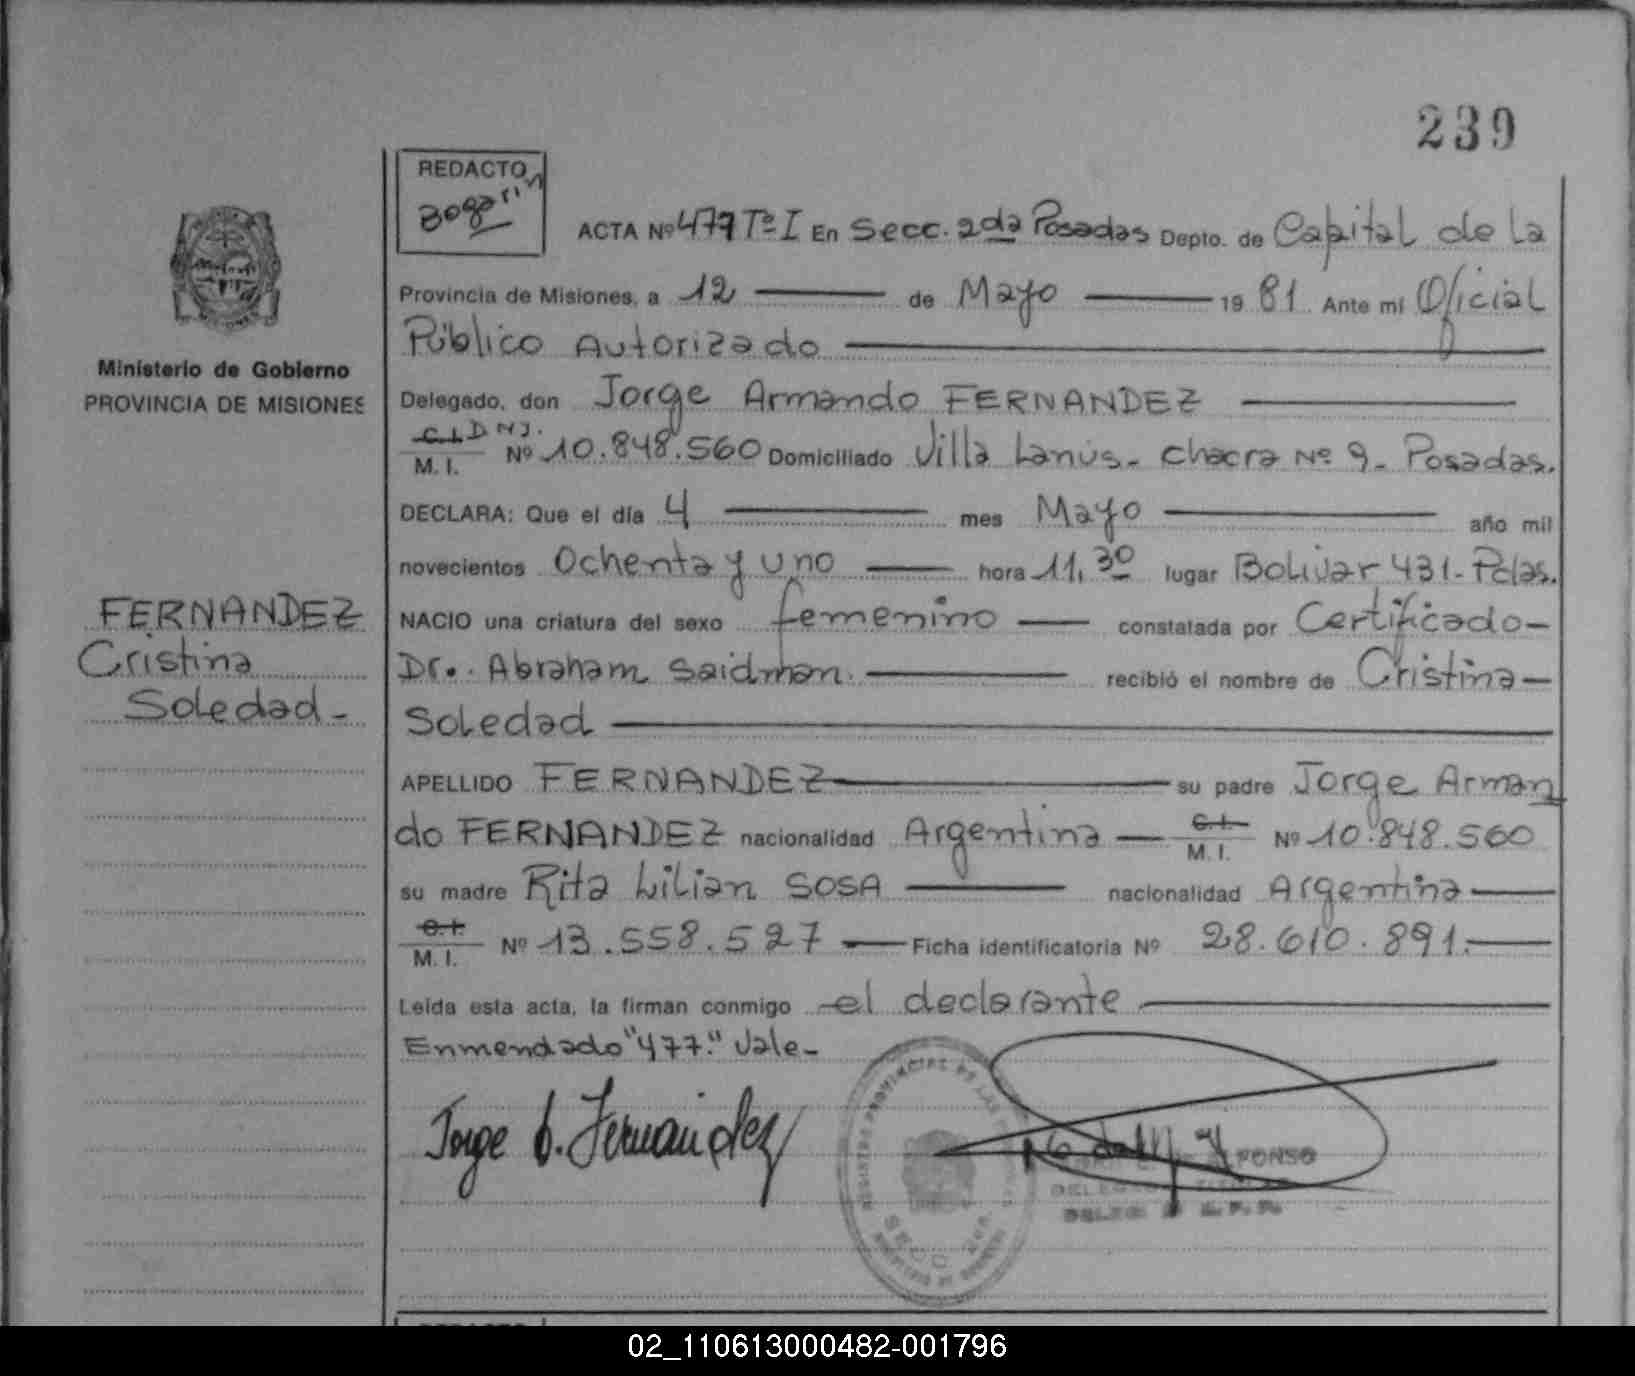 239
REDACTO
Bogarin
ACTA Nº 477 Tº I En Secc. 2da Posadas Depto. de Capital de La
Provincia de Misiones, a 12 de Mayo 19 81 Ante mi Oficial
Público Autorizado
Ministerio de Gobierno
PROVINCIA DE MISIONES
Delegado, don Jorge Armando FERNANDEZ
C.I. DNI.
M. I. Nº 10.848.560 Domiciliado Villa Lanús - Chacra Nº 9 - Posadas.
DECLARA: Que el día 4 mes Mayo año mil
novecientos Ochenta y uno hora 11,30 lugar Bolivar 431 - Pdas.
FERNANDEZ
Cristina
Soledad -
NACIO una criatura del sexo femenino constatada por Certificado-
Dr. Abraham Saidman recibió el nombre de Cristina-
Soledad
APELLIDO FERNANDEZ su padre Jorge Arman
do FERNANDEZ nacionalidad Argentina C.I. M. I. Nº 10.848.560
su madre Rita Lilian SOSA nacionalidad Argentina
C.I. M. I. Nº 13.558.527 Ficha identificatoria Nº 28.610.891.
Leída esta acta, la firman conmigo el declarante
Enmendado "477." Vale-
Jorge A. Fernandez
REGISTRO PROVINCIAL DE LAS
SECC. 2da.
ALFONSO
02_110613000482-001796